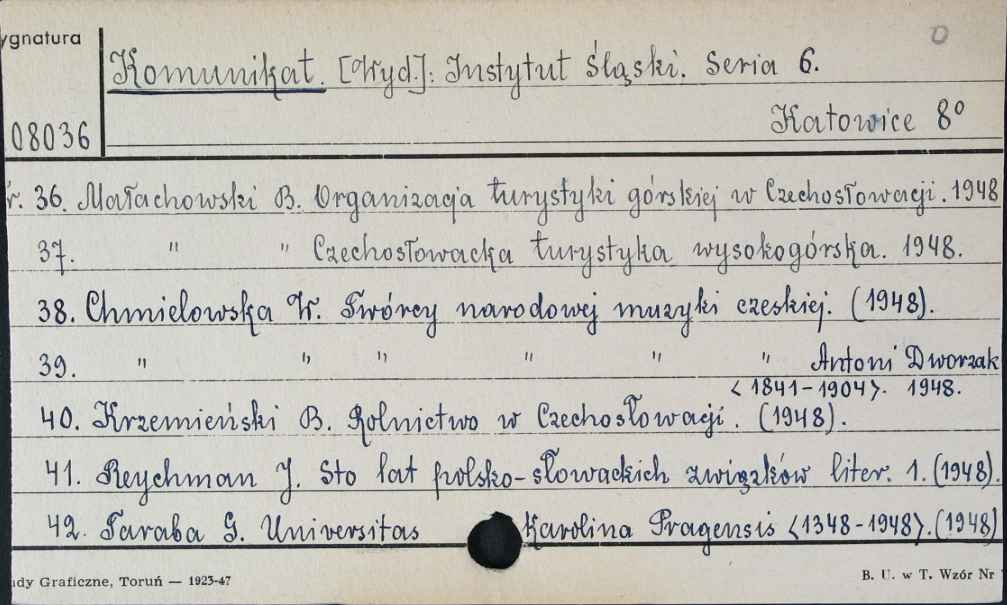 ygnatura
Komunikat. [Wyd.]: Instytut Śląski. Seria 6.
Katowice 8º
08036
r. 36. Małachowski B. Organizacja turystyki górskiej w Czechosłowacji. 1948
37. " " Czechosłowacka turystyka wysokogórska. 1948.
38. Chmielowska W. Twórcy narodowej muzyki czeskiej. (1948).
39. " " " " " " Antoni Dworzak
<1841-1904>. 1948.
40. Krzemieński B. Rolnictwo w Czechosłowacji. (1948).
41. Reychman J. Sto lat polsko-słowackich związków liter. 1. (1948).
42. Taraba G. Universitas Karolina Pragensis <1348-1948>. (1948)
ady Graficzne, Toruń — 1923-47
B. U. w T. Wzór Nr